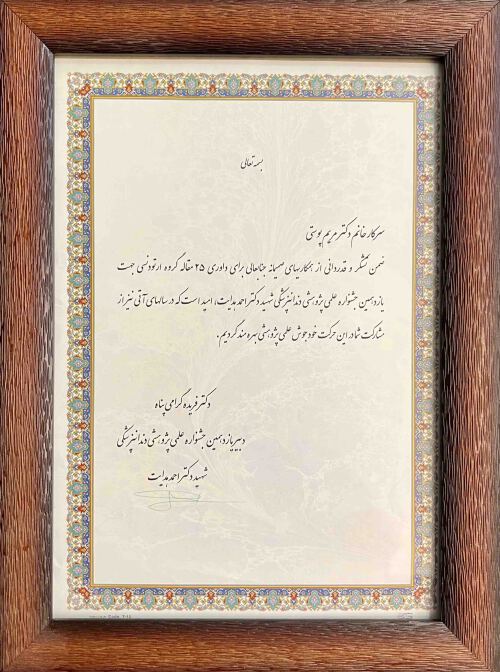 بسمه تعالی
سرکار خانم دکتر مریم پوستی
ضمن تشکر و قدردانی از همکاریهای صمیمانه جنابعالی برای داوری ۲۵ مقاله گروه ارتودنسی جهت
یازدهمین جشنواره علمی پژوهشی دندانپزشکی شهید دکتر احمد هدایت، امید است که در سالهای آتی نیز از
مشارکت شما در این حرکت خودجوش علمی پژوهشی بهره مند گردیم.
دکتر فریده گرامی پناه
دبیر یازدهمین جشنواره علمی پژوهشی دندانپزشکی
شهید دکتر احمد هدایت